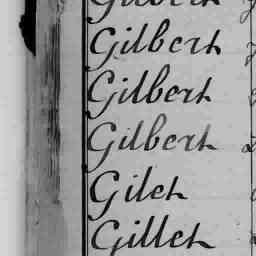 Gilbert
Gilbert
Gilbert
Gilbert
Gilet
Gillet